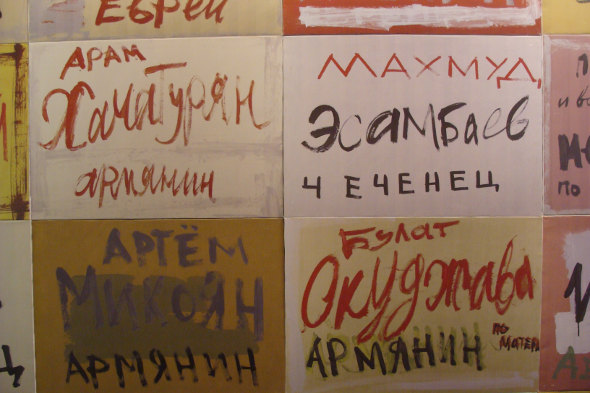 ЕВРЕЙ
АРАМ
Хачатурян
армянин
МАХМУД
Эсамбаев
ЧЕЧЕНЕЦ
АРТЁМ
МИКОЯН
АРМЯНИН
БУЛАТ
Окуджава
АРМЯНИН
ПО МАТЕРИ